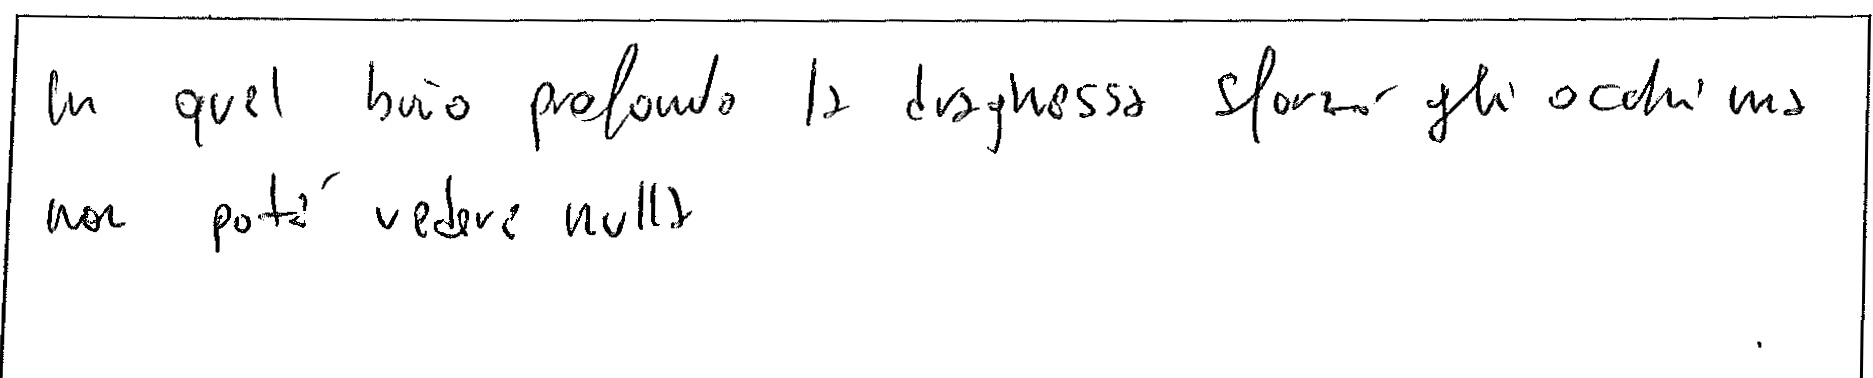 In quel buio profondo la draghessa sforzó gli occhi ma
non poté vedere nulla